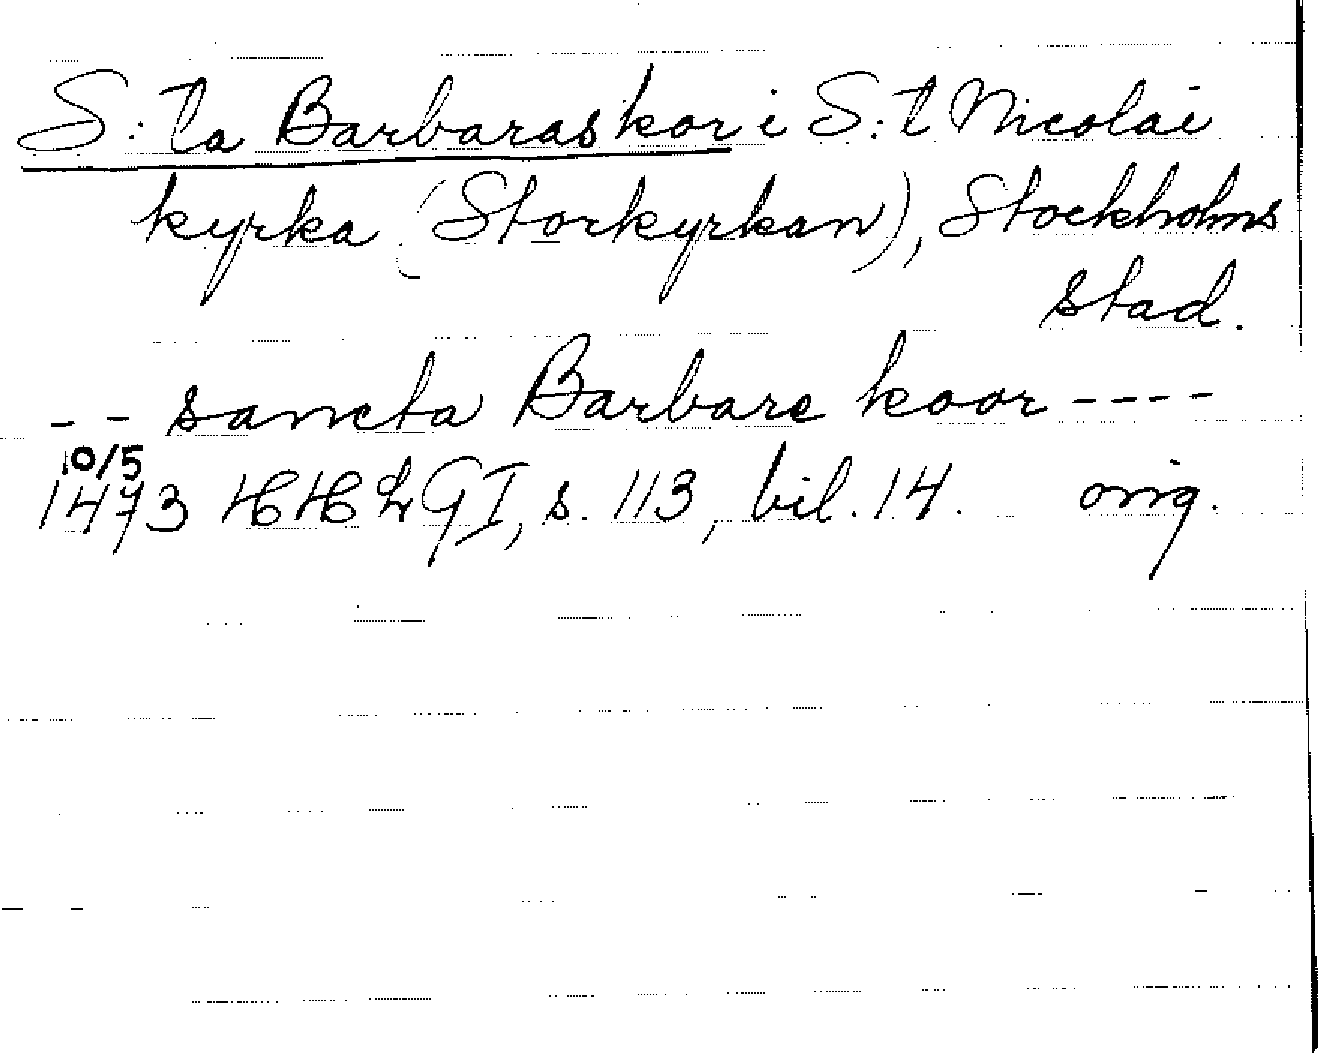 S:ta Barbaras kor i S:t Nicolai
kyrka (Storkyrkan), Stockholms
stad.
-- sancta Barbare koor ----
10/5
1473 HH LGI, s. 113, bil. 14. orig.